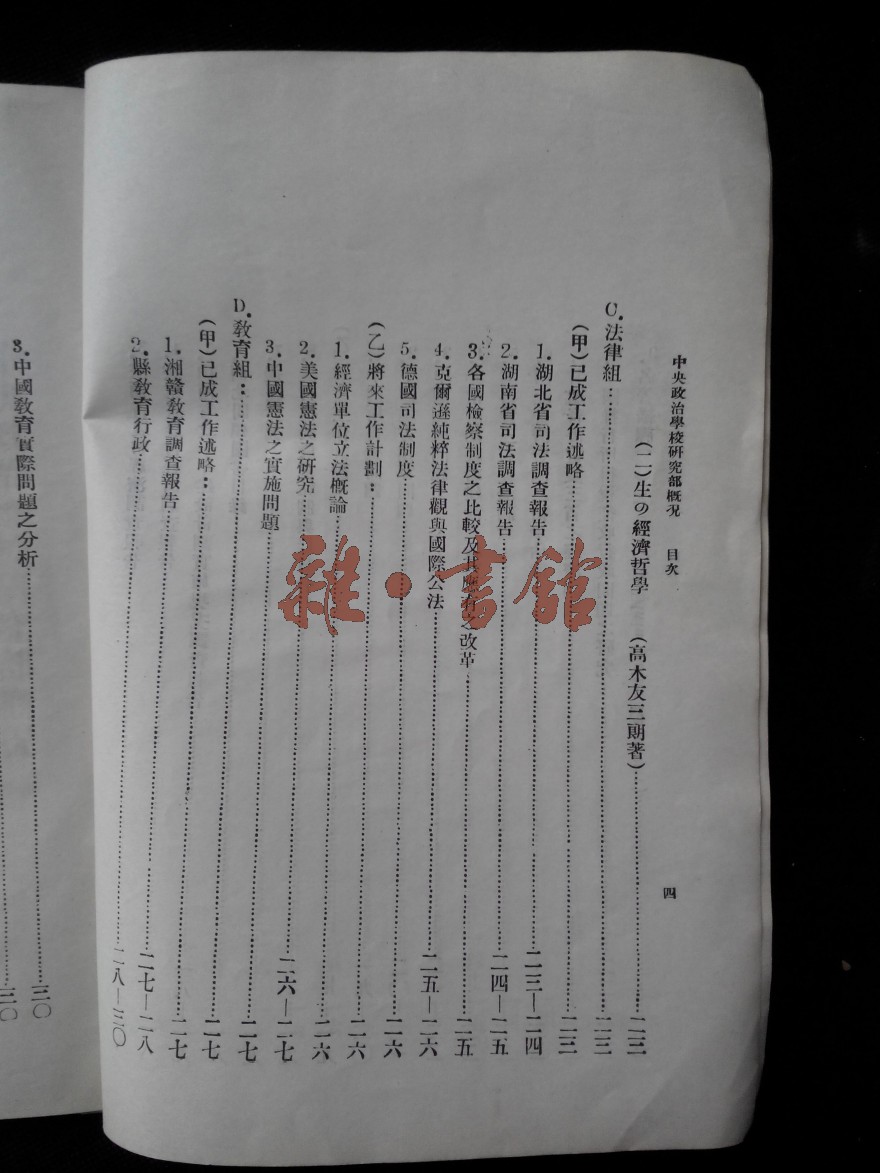 中央政治學校研究部概况 目次 四
(二)生の經濟哲學 (高木友三郎著)……二三
C.法律組:……二三
(甲)已成工作述略……二三
1.湖北省司法調查報告……二三—二四
2.湖南省司法調查報告……二四—二五
3.各國檢察制度之比較及其應有之改革……二五
4.克爾遜純粹法律觀與國際公法……二五—二六
5.德國司法制度……二六
(乙)將來工作計劃:……二六
1.經濟單位立法概論……二六
2.美國憲法之研究……二六
3.中國憲法之實施問題……二六—二七
D.教育組:……二七
(甲)已成工作述略:……二七
1.湘贛教育調查報告……二七
2.縣教育行政……二七—二八
二八—三〇
3.中國教育實際問題之分析……三〇
三〇
雜·書館